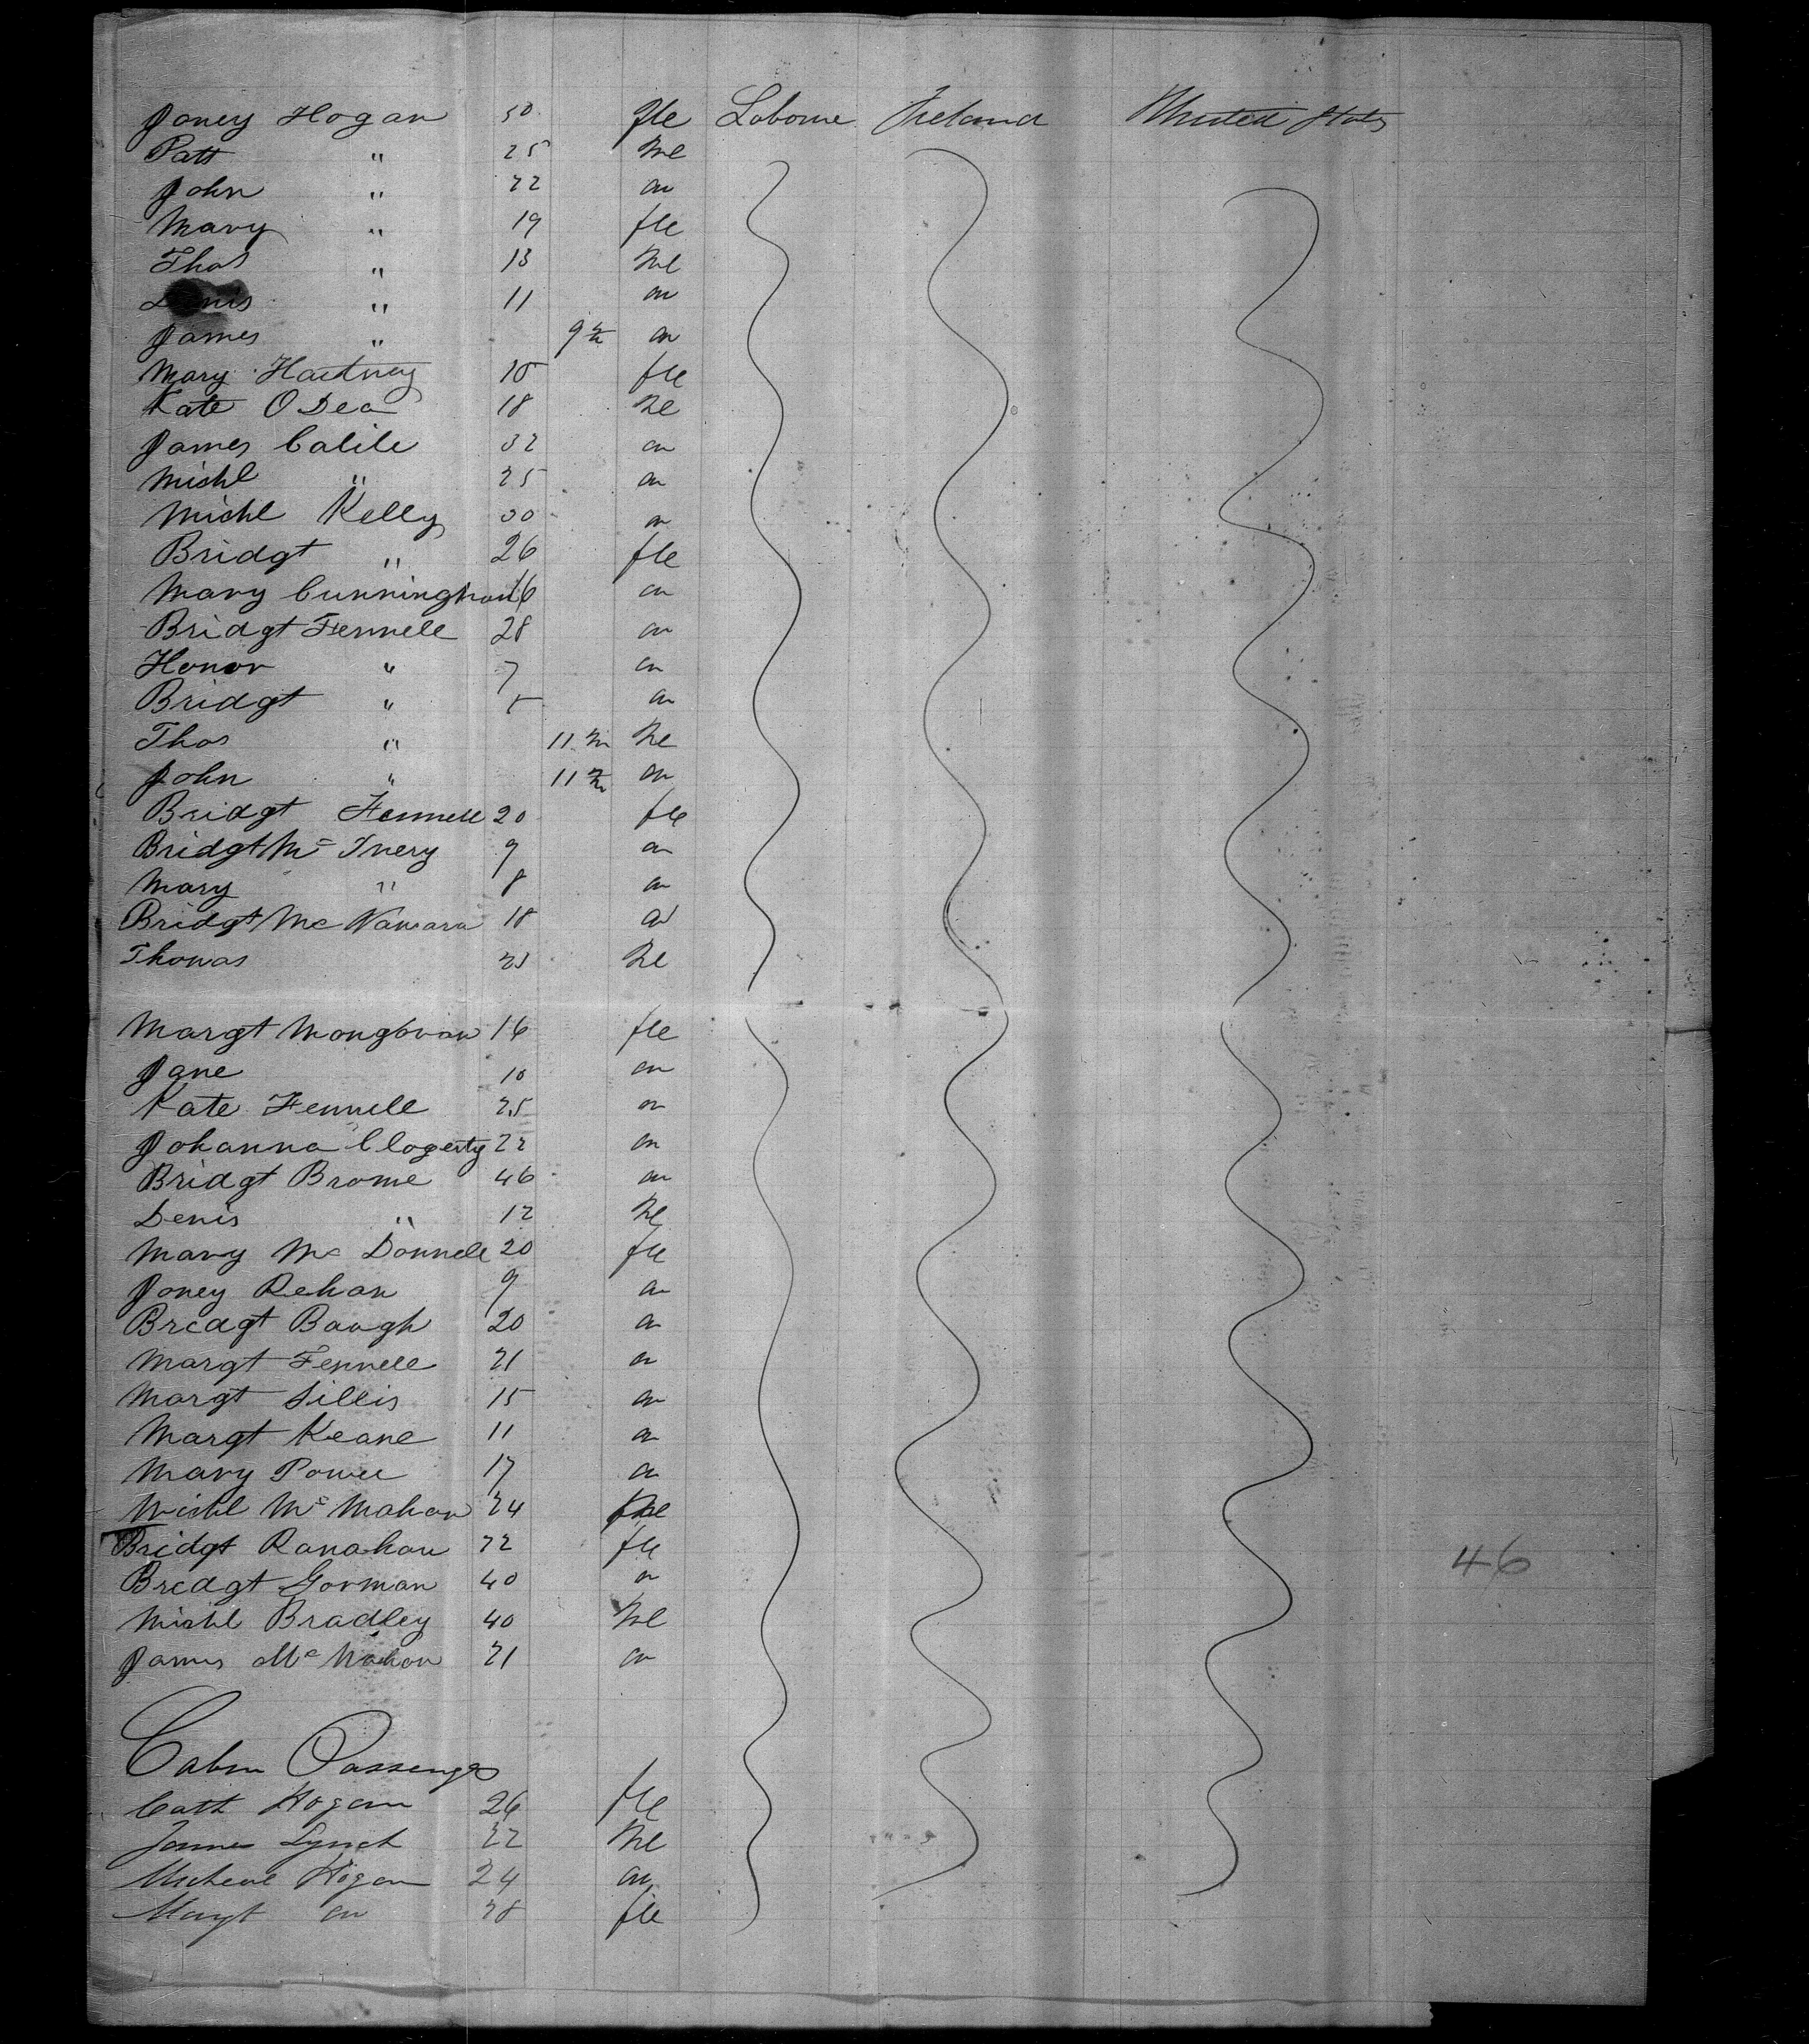 Joney Hogan 50 fle Laborer Ireland United States
Patt " 25 Ml
John " 22 do
Mary " 19 fle
Thos " 13 Ml
Denis " 11 do
James " 9 m do
Mary Hartney 18 fle
Kate O Dea 18 Ml
James Calile 32 do
Michl " 25 do
Michl Kelly 30 do
Bridgt " 26 fle
Mary Cunningham 16 do
Bridgt Fennell 28 do
Honor " 7 do
Bridgt " 5 do
Thos " 11 m Ml
John " 11 m do
Bridgt Fennell 20 fle
Bridgt Mc Inery 9 do
Mary " 8 do
Bridgt Mc Namara 18 do
Thomas Ml
Margt Mongovan 16 fle
Jane 10 do
Kate Fennell 25 do
Johanna Clogerty 22 do
Bridgt Browne 46 do
Denis " 12 Ml
Mary Mc Donnell 20 fle
Joney Rehan 9 do
Bridgt Baugh 20 do
Margt Fennell 21 do
Margt Lillis 15 do
Margt Keane 11 do
Mary Power 17 do
Michl Mc Mahon 24 Ml
Bridgt Ranahan 22 fle
Bridgt Gorman 40 do
46
Michl Bradley 40 Ml
James Mc Mahon 21 do
Cabin Passengers
Cath Hogan 26 fle
James Lynch 22 Ml
Micheal Hogan 24 do
Margt do 28 fle